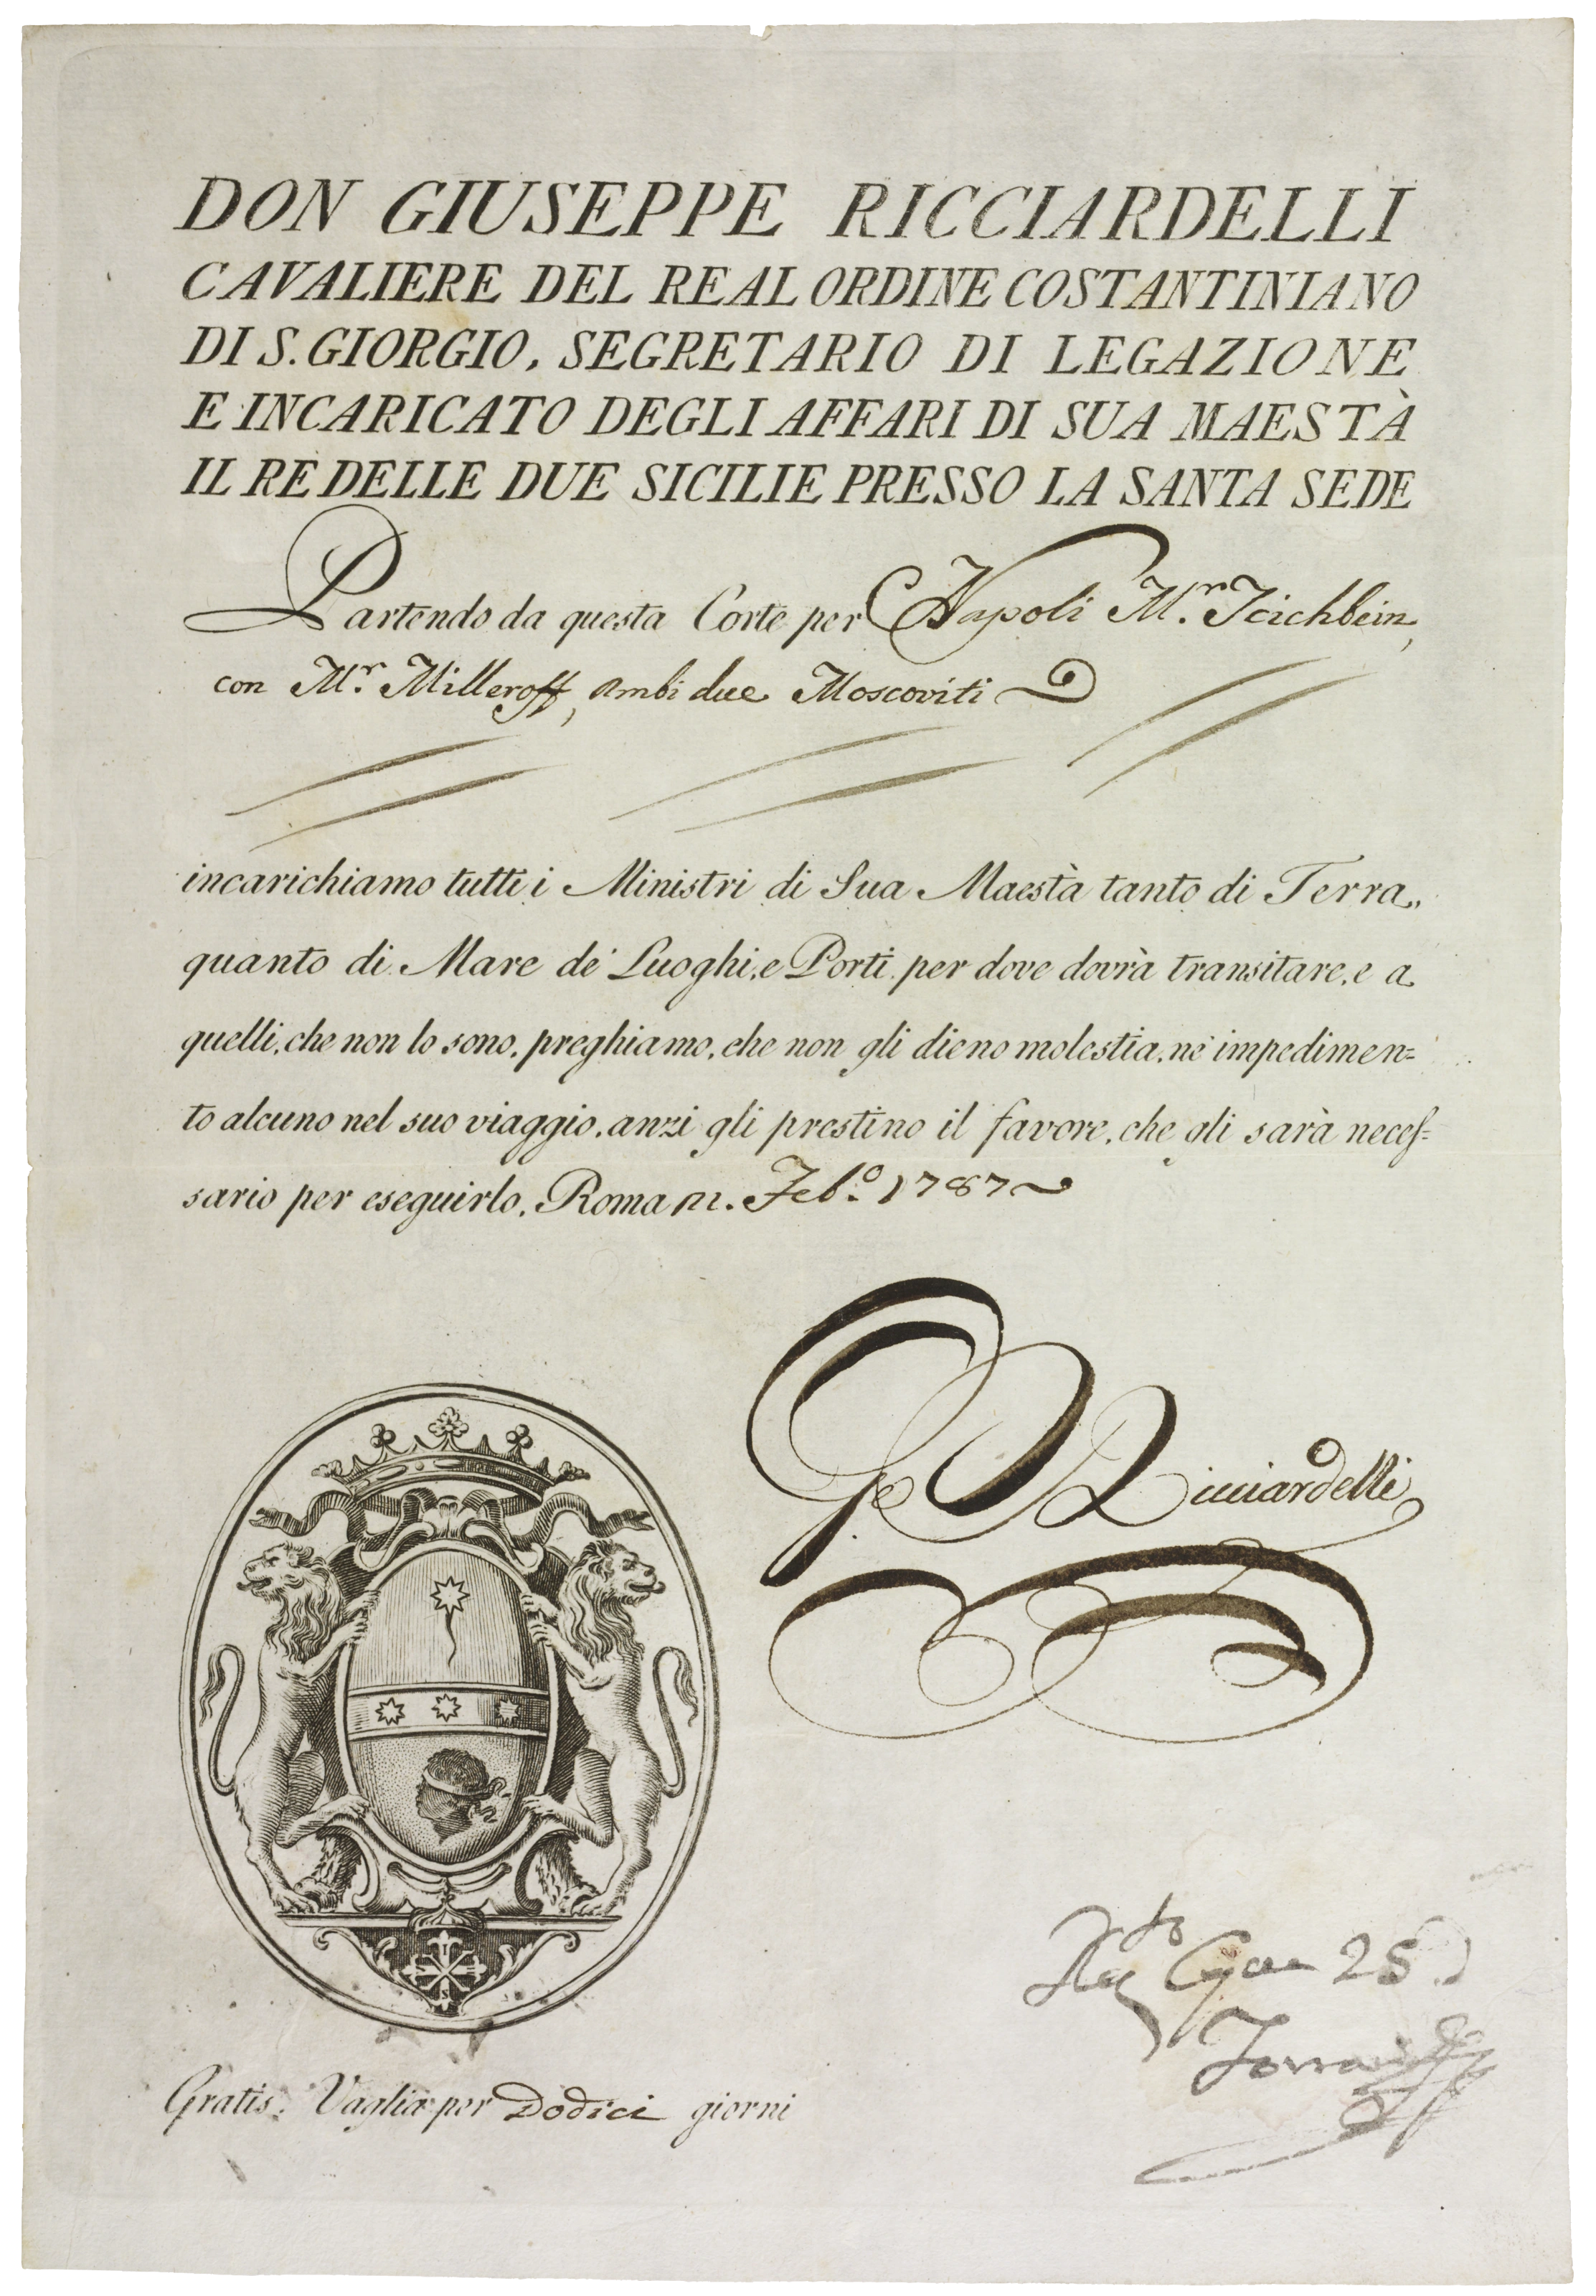 DON GIUSEPPE RICCIARDELLI
CAVALIERE DEL REAL ORDINE COSTANTINIANO
DI S. GIORGIO, SEGRETARIO DI LEGAZIONE
E INCARICATO DEGLI AFFARI DI SUA MAESTÀ
IL RE DELLE DUE SICILIE PRESSO LA SANTA SEDE
Partendo da questa Corte per Napoli M.r Teichbein,
con M.r Milleroff, ambi due Moscoviti
incarichiamo tutti i Ministri di Sua Maestà tanto di Terra,
quanto di Mare de' Luoghi, e Porti per dove dovrà transitare, e a
quelli, che non lo sono, preghiamo, che non gli dieno molestia, nè impedimen=
to alcuno nel suo viaggio, anzi gli prestino il favore, che gli sarà neceſ=
sario per eseguirlo, Roma Feb.o 1787
G Ricciardelli
25
Gratis. Vaglia per Dodici giorni